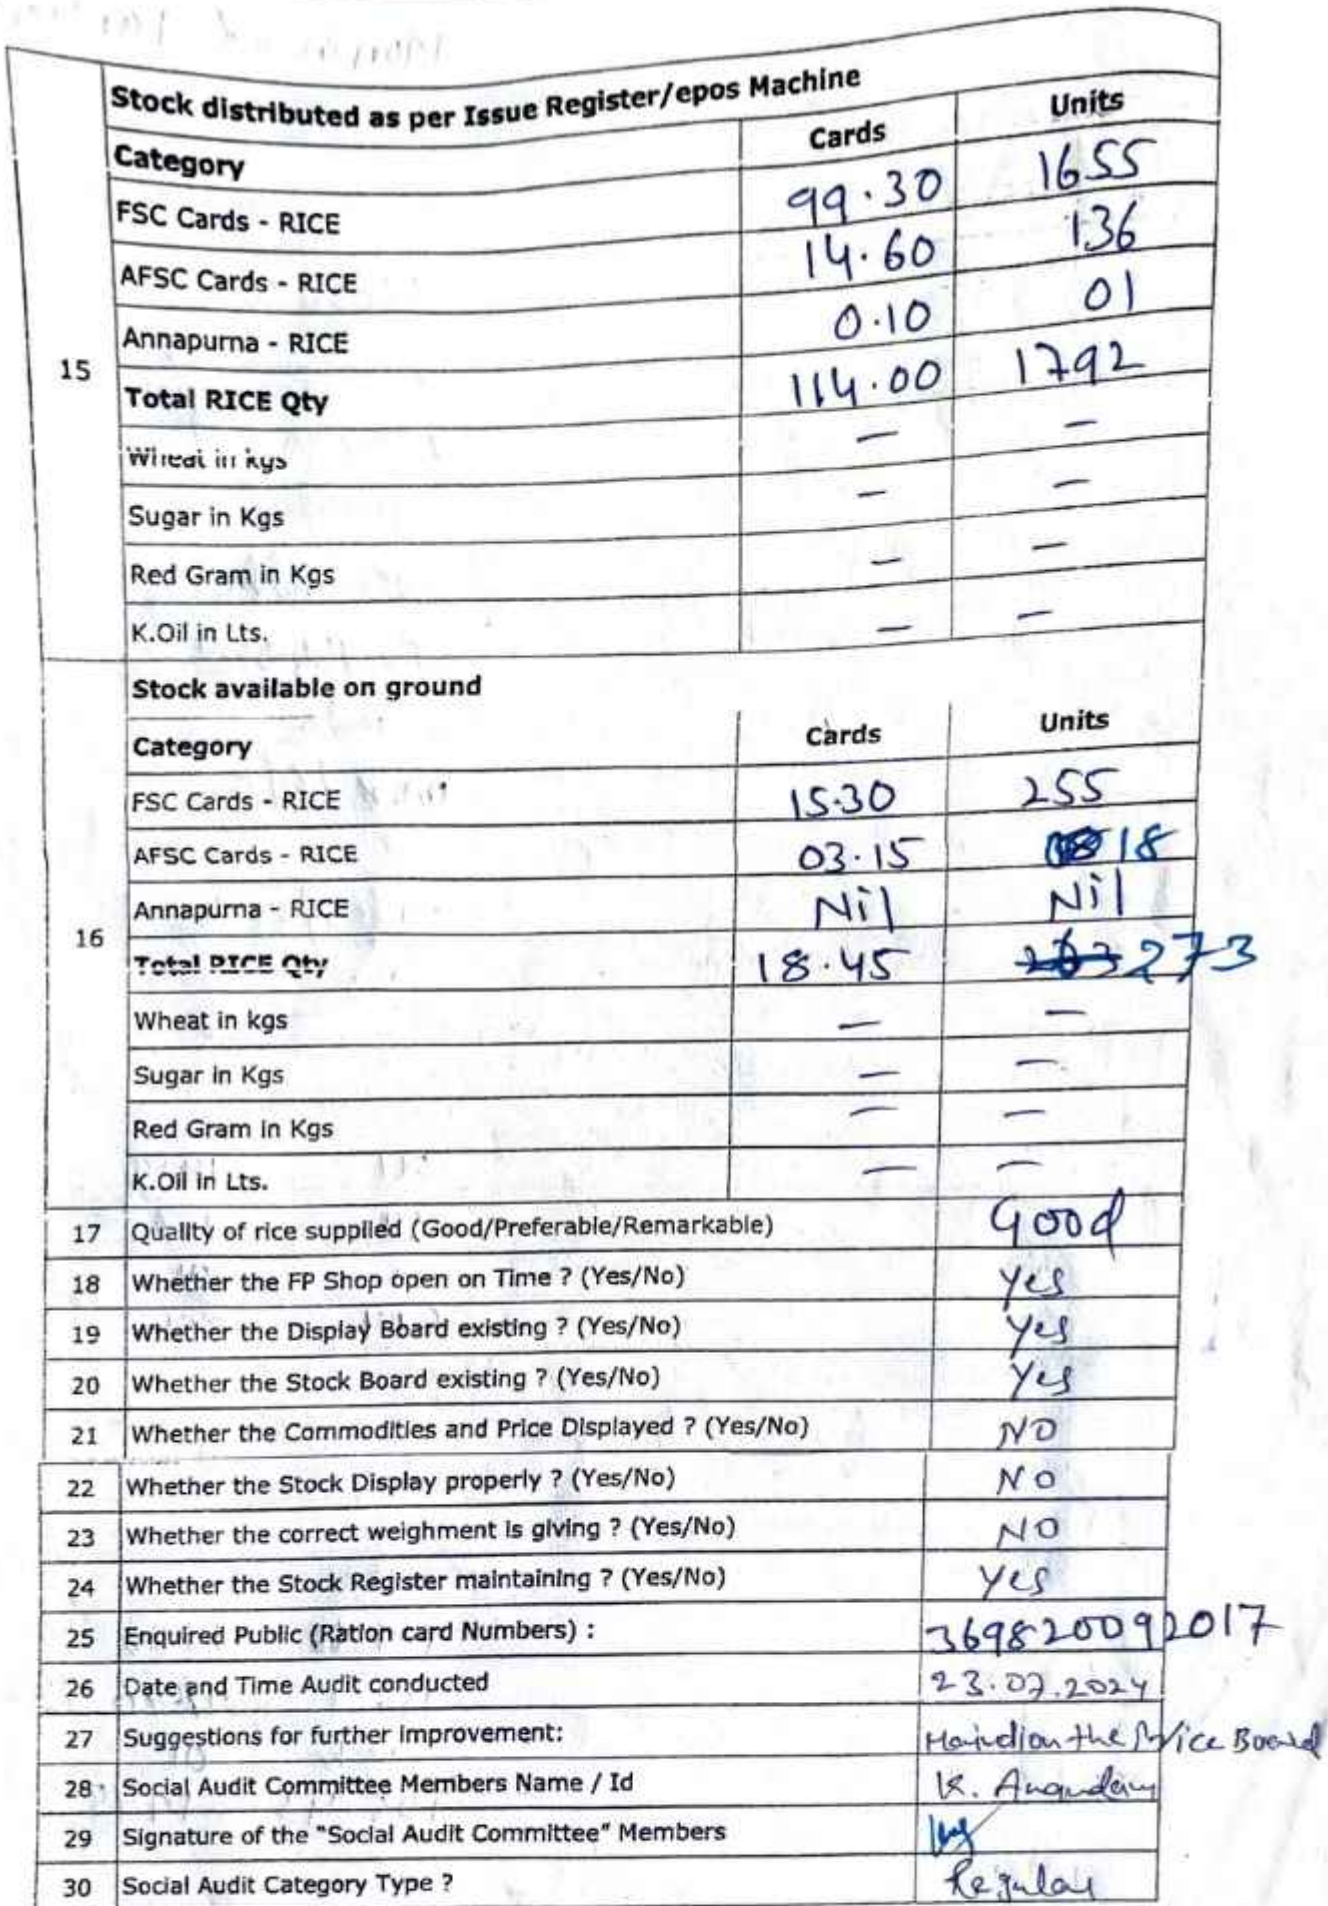 Stock distributed as per Issue Register/epos Machine
Category Cards Units
FSC Cards - RICE 99.30 1655
AFSC Cards - RICE 14.60 136
Annapurna - RICE 0.10 01
15
Total RICE Qty 114.00 1792
Wheat in kgs — —
Sugar in Kgs — —
Red Gram in Kgs — —
K.Oil in Lts. — —
Stock available on ground
Category Cards Units
FSC Cards - RICE 15.30 255
AFSC Cards - RICE 03.15 18
Annapurna - RICE Nil Nil
16
Total RICE Qty 18.45 263 273
Wheat in kgs — —
Sugar in Kgs — —
Red Gram in Kgs — —
K.Oil in Lts. — —
17 Quality of rice supplied (Good/Preferable/Remarkable) Good
18 Whether the FP Shop open on Time ? (Yes/No) Yes
19 Whether the Display Board existing ? (Yes/No) Yes
20 Whether the Stock Board existing ? (Yes/No) Yes
21 Whether the Commodities and Price Displayed ? (Yes/No) NO
22 Whether the Stock Display properly ? (Yes/No) NO
23 Whether the correct weighment is giving ? (Yes/No) NO
24 Whether the Stock Register maintaining ? (Yes/No) Yes
25 Enquired Public (Ration card Numbers) : 369820092017
26 Date and Time Audit conducted 23.07.2024
27 Suggestions for further improvement: the Price Board
28 Social Audit Committee Members Name / Id K.
29 Signature of the "Social Audit Committee" Members
30 Social Audit Category Type ? Regular